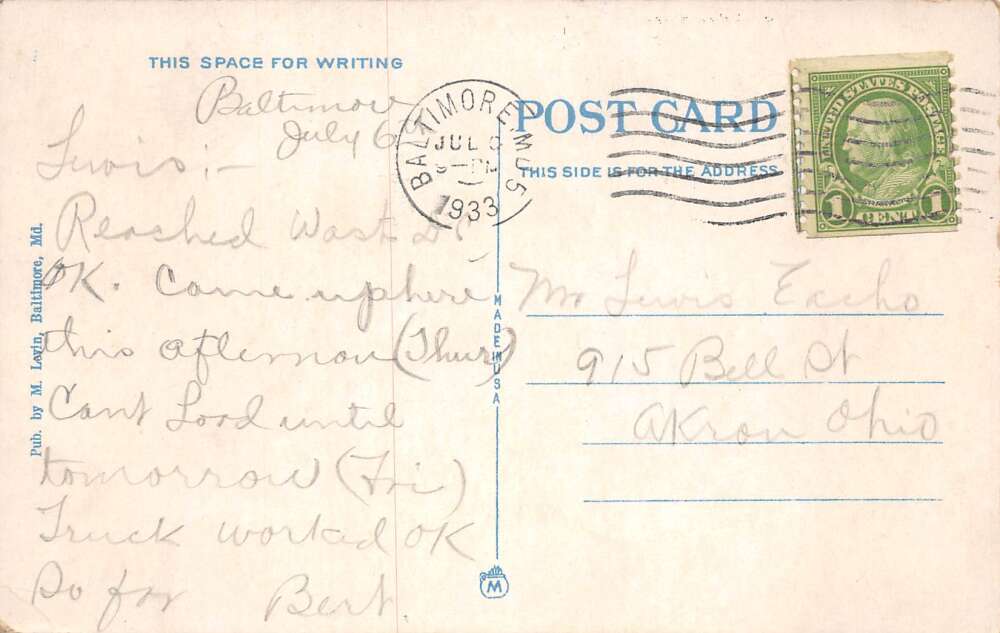 THIS SPACE FOR WRITING
Baltimore
July 6
Lewis:-
Reached Wash DC
OK. Come up here
this afternoon (Thur)
Cant Load until
tomorrow (Fri)
Truck worked OK
So far Bert.
Pub. by M. Levin, Baltimore, Md.
MADE IN USA
M
BALTIMORE, MD. 5
JUL
PM
1933
POST CARD
THIS SIDE IS FOR THE ADDRESS
UNITED STATES POSTAGE
FRANKLIN
1 CENT 1
Mr Lewis Eacho
915 Bell St
Akron Ohio